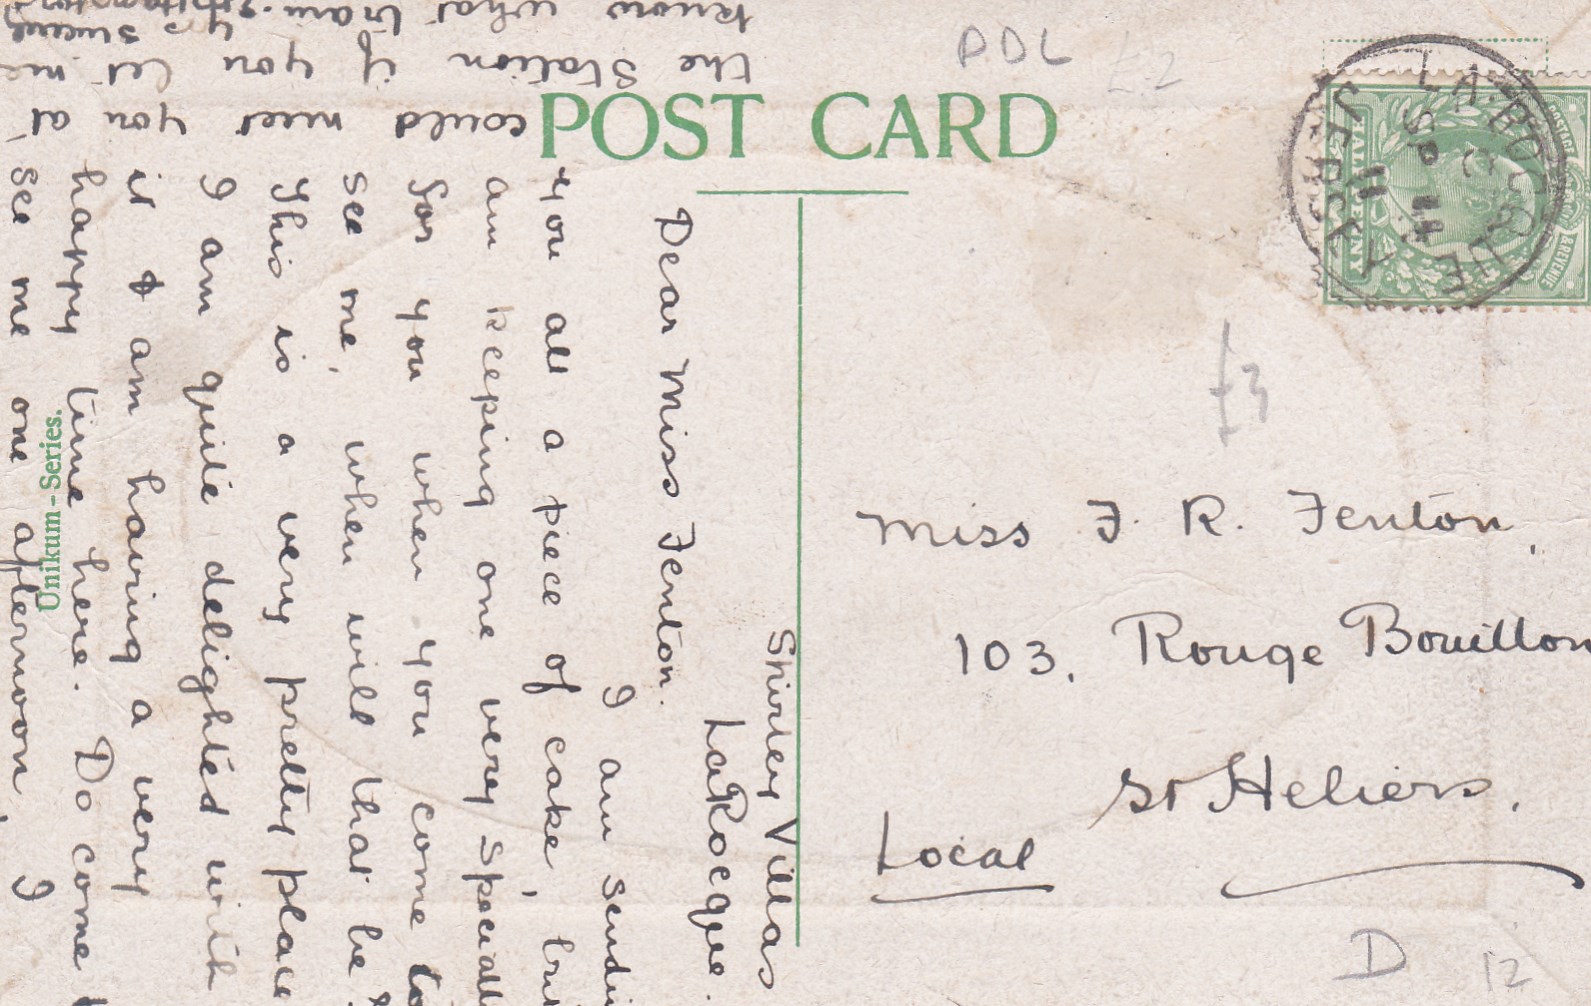 POST CARD
Unikum-Series.
Shirley Villas
LaRocque.
Dear Miss Fenton.
I am sendi
you all a piece of cake, but
am keeping one very speciall
for you when you come to
see me, when will that be?
This is a very pretty place
I am quite delighted with
it & am having a very
happy time here. Do come
see me one afternoon, I
could meet you at
the Station if you let me
know what train.
Miss F. R. Fenton,
103, Rouge Bouillon
St Heliers.
Local
LA ROCQUE
SP 14
11
JERSEY
POSTAGE
& REVENUE
HALFPENNY
DDL
£2
£3
D
12